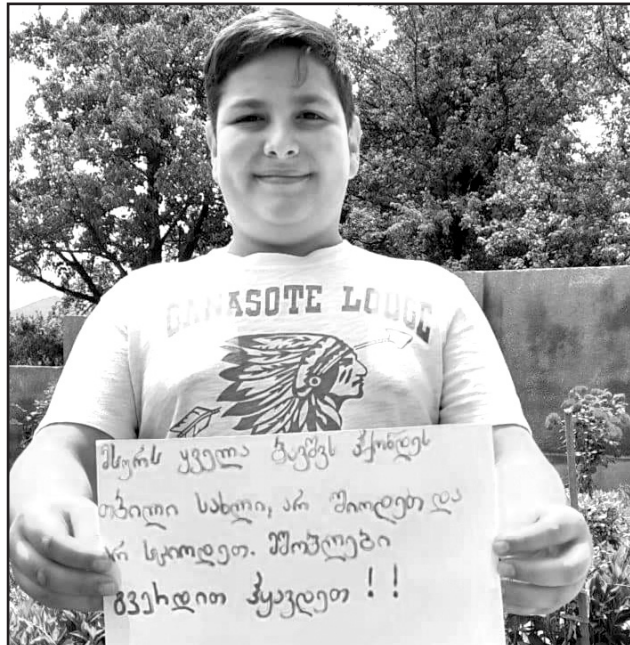 GANASOTE LODGE
მსურს ყველა ბავშვს ჰქონდეს
თბილი სახლი, არ შიოდეთ და
არ სციოდეთ. მშობლები
გვერდით ჰყავდეთ !!